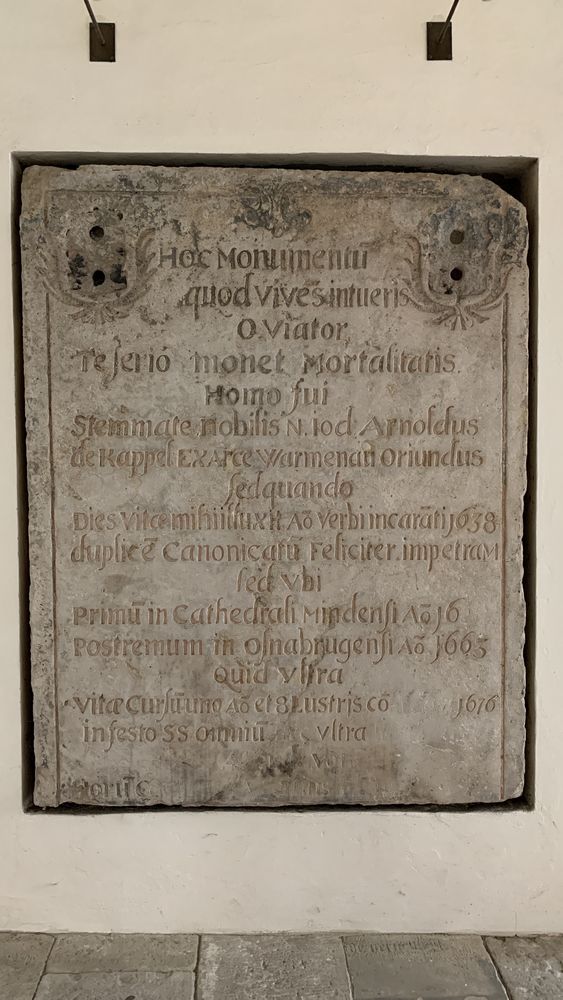 Hoc Monumentū
quod Vives intueris
O Viator,
Te serio monet Mortalitatis.
Homo fui
Stemmate nobilis N. iod. Arnoldus
de Kappel EX Arce Warmenau Oriundus
sed quando
Dies Vitæ mihi illuxit Aō Verbi incarāti 1638
duplicē Canonicatū Feliciter impetram
sed Vbi
Primū in Cathedrali Mindensi Aō 16
Postremum in Osnabrugensi Aō 1663
Quid Vltra
Vitæ Cursū uno Aō et 8 Lustris cō 1676
in festo SS Omniū Vltra